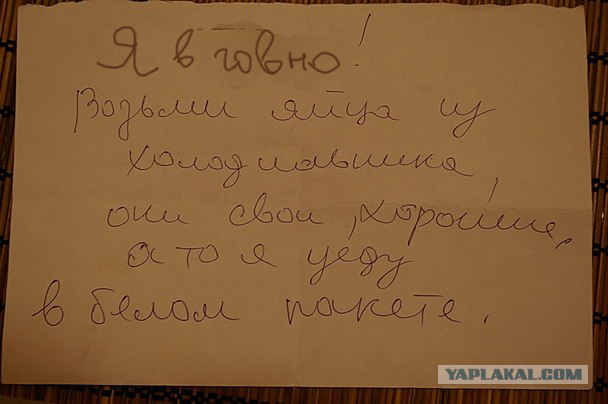 Я в говно!
Возьми яйца из
холодильника,
они свои, хорошие,
а то я уеду
в белом пакете.
YAPLAKAL.COM